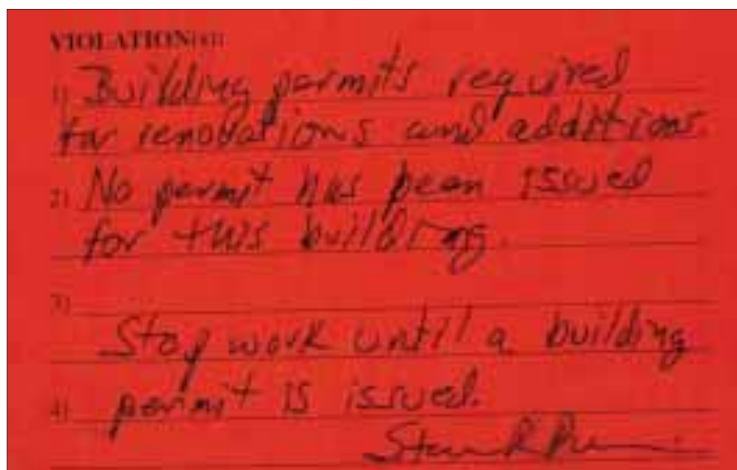 VIOLATION(s):
1) Building permits required
for renovations and additions.
2) No permit has been issued
for this building.
3)
Stop work until a building
4) permit is issued.